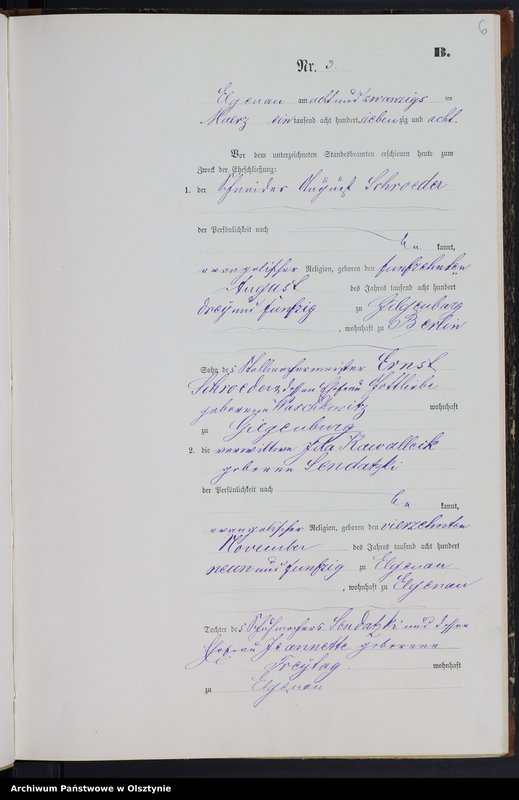 6
B.
Nr. 3.
Elgenau am acht und zwanzigs ten
Maerz ein tausend acht hundert sieben zig und acht.
Vor dem unterzeichneten Standesbeamten erschienen heute zum
Zweck der Eheschließung:
1. der Schneider August Schroeder
der Persönlichkeit nach
be kannt,
evangelischer Religion, geboren den funfzehnten
August des Jahres tausend acht hundert
drei und funfzig zu Gilgenburg
, wohnhaft zu Berlin
Sohn des Stellmachermeister Ernst
Schroeder dessen Ehefrau Gottliebe
geborene Waschkewitz wohnhaft
zu Gilgenburg
2. die verwittwete Kawalleck
geborene Sendatzki
der Persönlichkeit nach
be kannt,
evangelischer Religion, geboren den vierzehnten
November des Jahres tausend acht hundert
neun und funfzig zu Elgenau
, wohnhaft zu Elgenau
Tochter des Schuhmachers Sendatzki und dessen
Ehefrau Jeannette geborene
Freytag wohnhaft
zu Elgenau
Archiwum Państwowe w Olsztynie